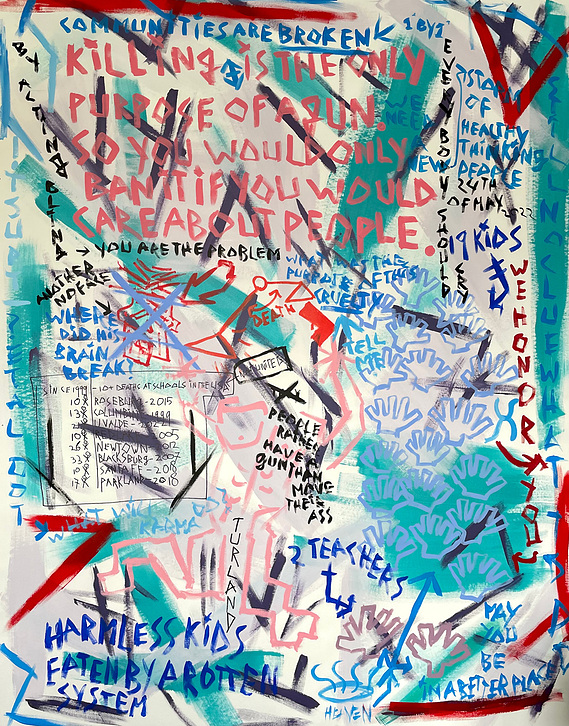 COMMUNITIES ARE BROKEN
1 BY 1
KILLING IS THE ONLY
PURPOSE OF A GUN.
SO YOU WOULD ONLY
BAN IT IF YOU WOULD
CARE ABOUT PEOPLE.
WE
NEED
NEW
STORY
OF
HEALTHY
THINKING
PEOPLE
24TH
OF MAY 2022
EVERYBODY SHOULD CRY
→ YOU ARE THE PROBLEM
19 KIDS
WE HONOR YOU
ANOTHER
NO FACE
WHERE
DID HIS
BRAIN
BREAK?
DEATH
PURPOSE OF THIS
CRUELTY
TELL
ME
SINCE 1999 - 10+ DEATHS AT SCHOOLS IN THE USA
10X ROSEBURG - 2015
13X COLUMBINE - 1999
UVALDE - 2022
2005
NEWTOWN 2012
33X BLACKSBURG - 2007
10X SANTA FE - 2018
17X PARKLAND - 2018
WANTED
PEOPLE
RATHER
HAVE A
GUN THAN
MOVE
THEIR
ASS
WHAT WILL DO
KARMA
TUR LAND
2 TEACHERS
HARMLESS KIDS
EATEN BY A ROTTEN
SYSTEM
HEAVEN
MAY
YOU
BE
IN A BETTER PLACE